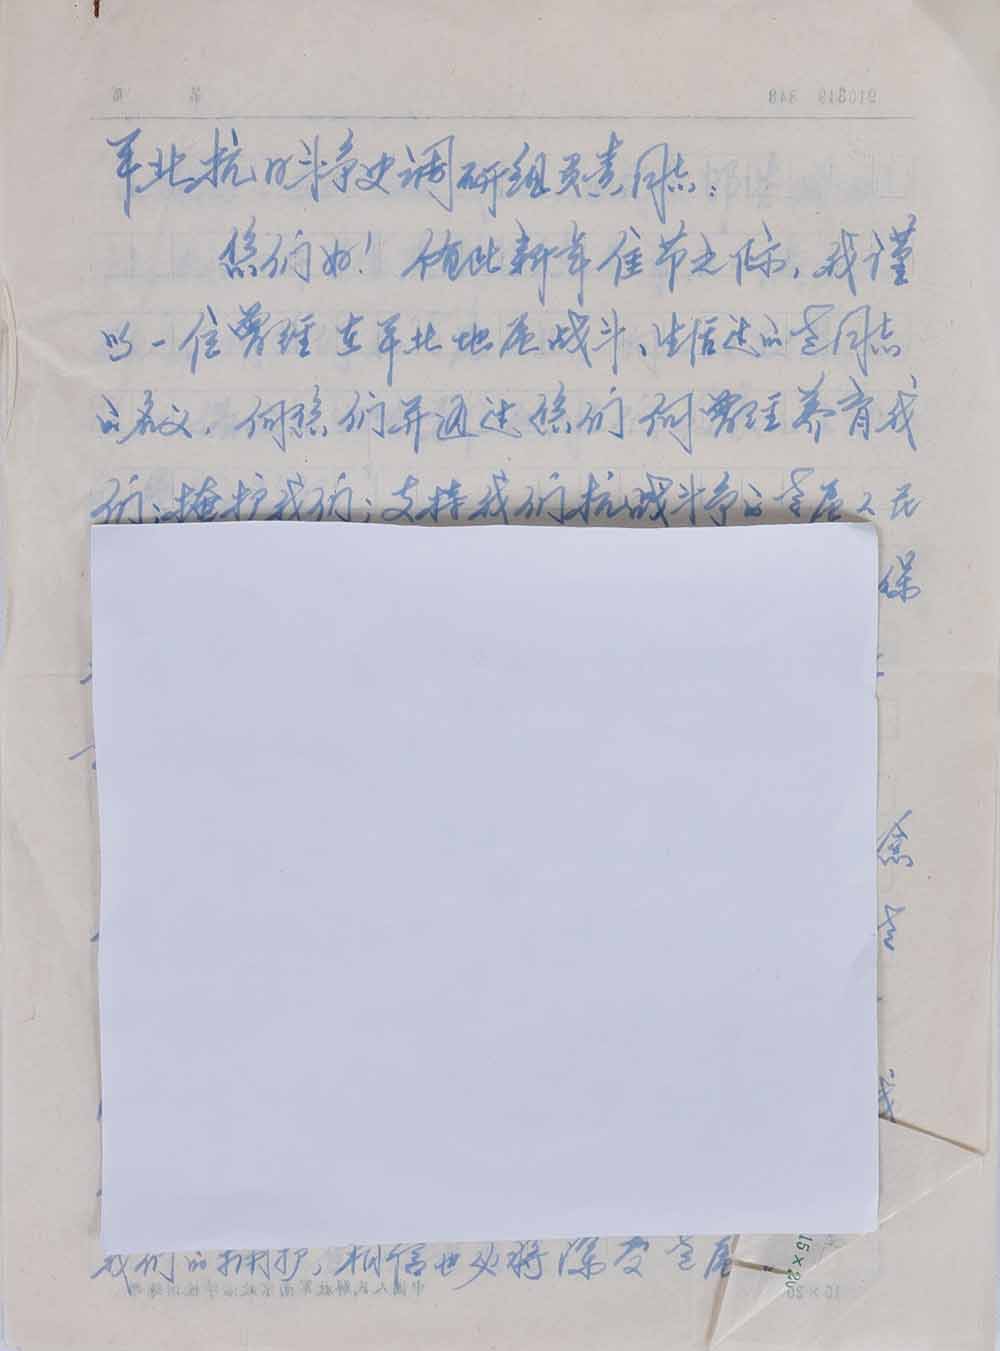 北抗日斗争史调研组负责同志:
您们好! 值此新年佳节之际,我谨
以一位曾经在北地区战斗、生活过的老同志
的名义,向您们并通过您们向曾经养育我
们;掩护我们;支持我们抗战斗争的老区人民
保
念
老
我
我们的拥护,相信也必将深受老区
15×20
中国人民解放军南京政治学校训练部
15×20
第 页
910319 348